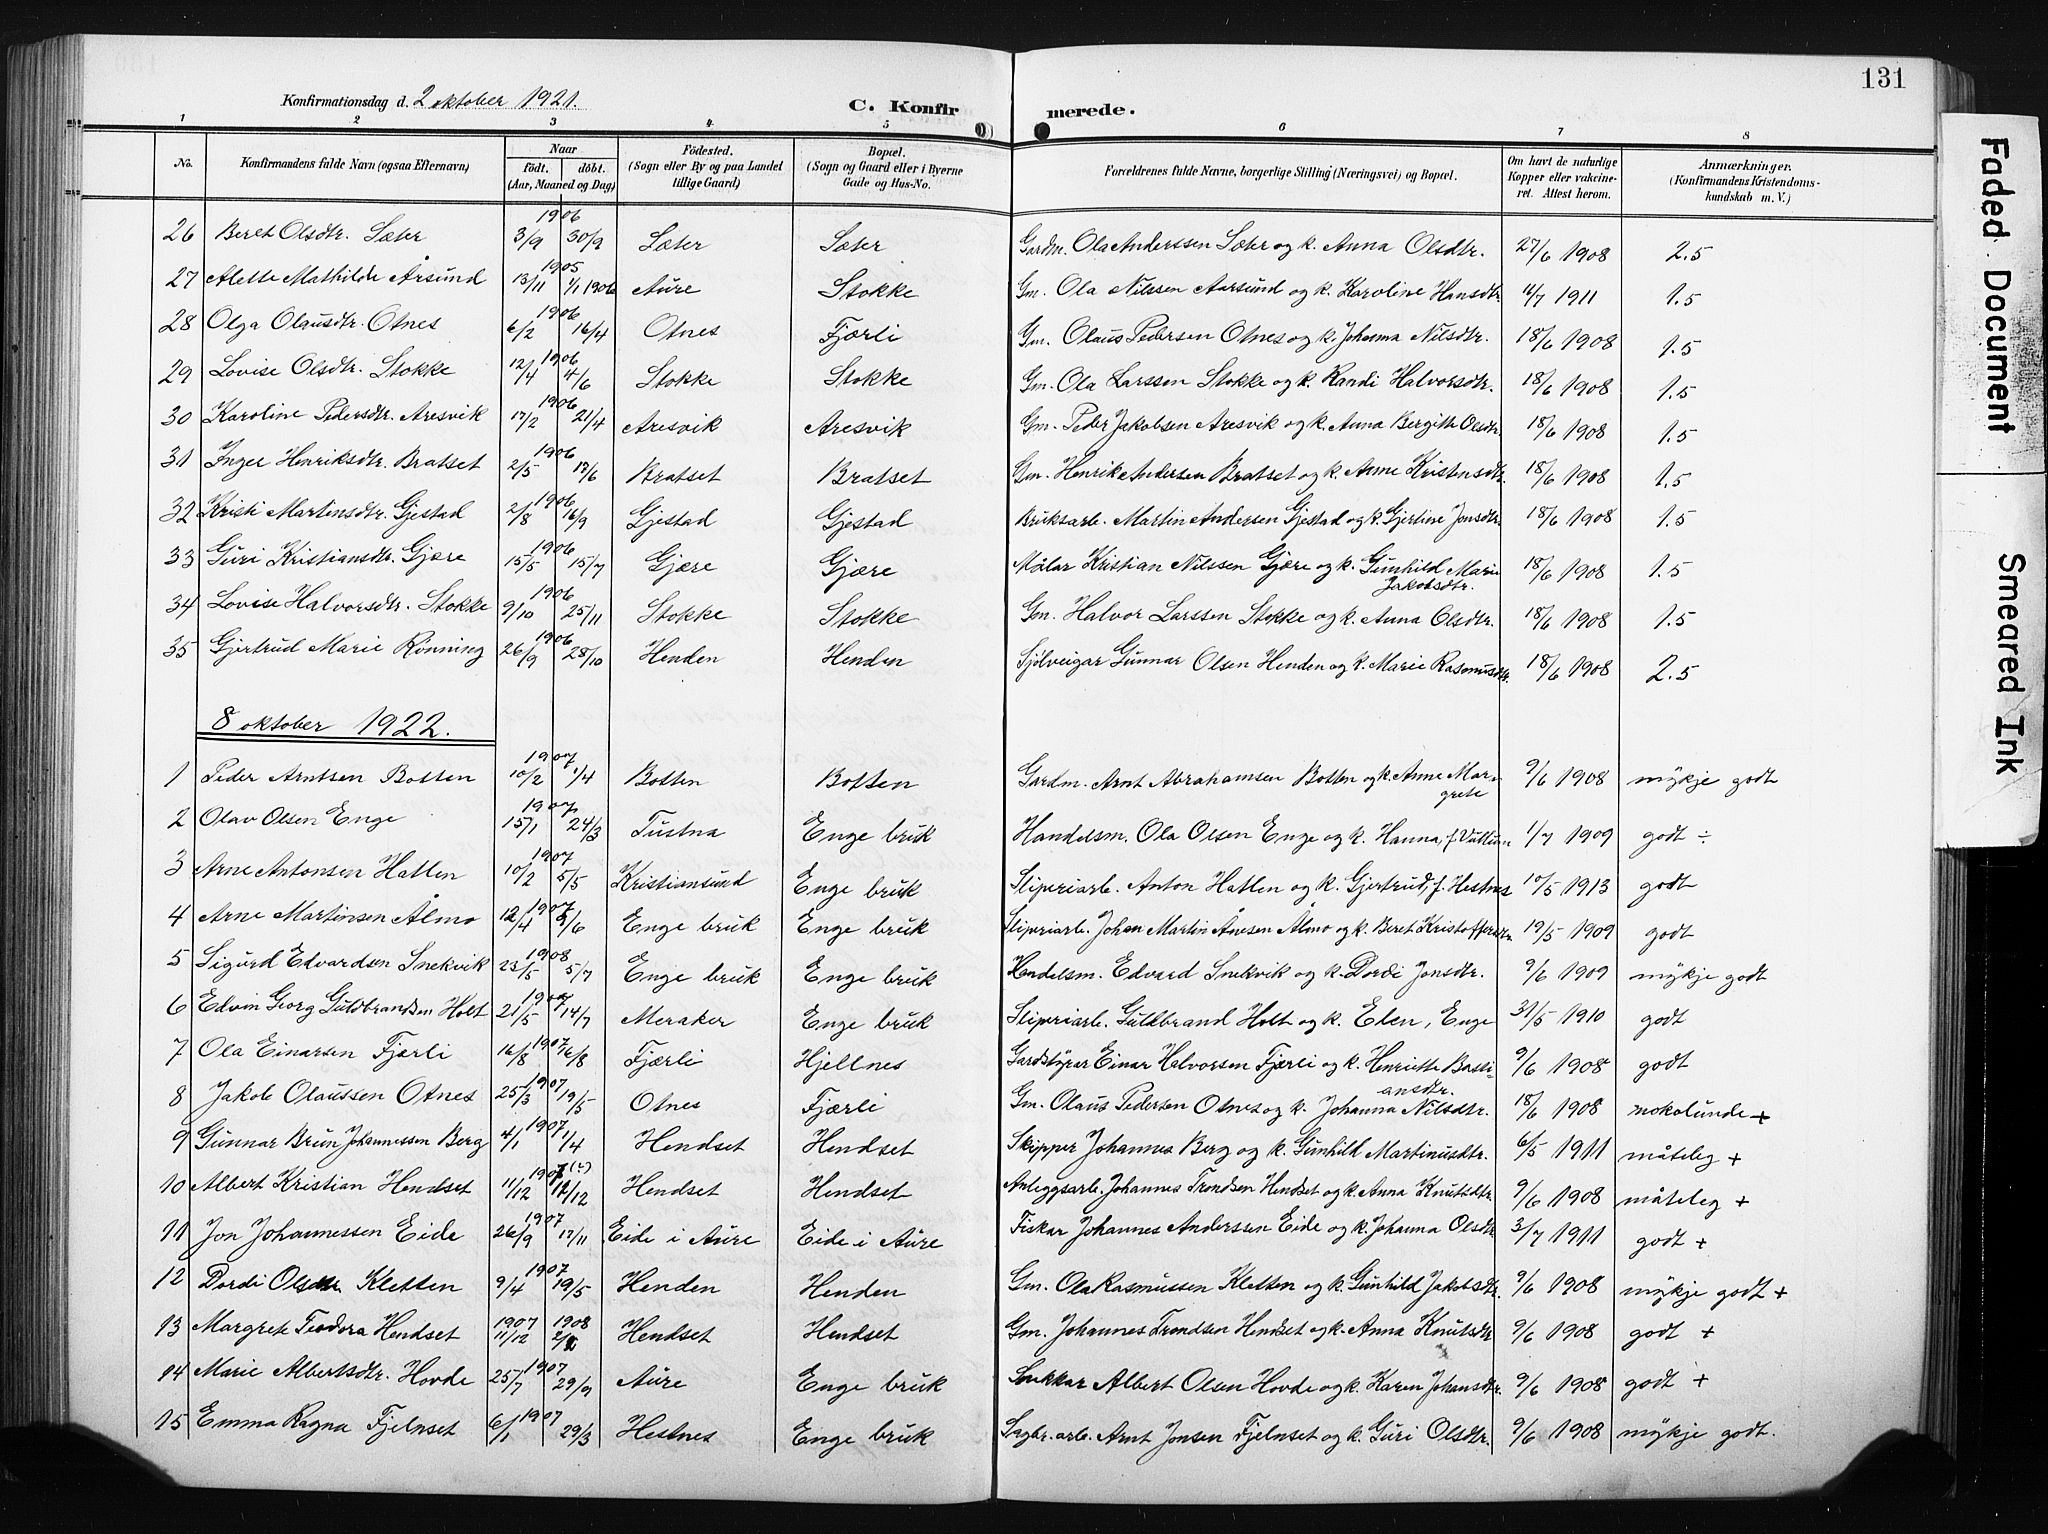 131
Konfirmationsdag d. 2 oktober 1921.
C. Konfirmerede.
1 2 3 4 5 6 7 8
No. Konfirmandens fulde Navn (ogsaa Efternavn) Naar født. døbt. (Aar, Maaned og Dag) Fødested. (Sogn eller By og paa Landet tillige Gaard) Bopæl. (Sogn og Gaard eller i Byerne Gade og Hus-No. Forældrenes fulde Navne, borgerlige Stilling (Næringsvei) og Bopæl. Om havt de naturlige Kopper eller vakcineret. Attest herom. Anmærkninger. (Konfirmandens Kristendomskundskab m. V.)
26 Beret Olsdtr. Sæter 1906 3/9 30/9 Sæter Sæter Gardm. Ola Anderssen Sæter og k. Anna Olsdtr. 27/6 1908 2.5
27 Alette Mathilde Årsund 1905 13/11 1/1 1906 Aure Stokke Gm. Ola Nilssen Aarsund og k. Karoline Hansdtr 11/7 1911 1.5
28 Olga Olausdtr. Otnes 1906 6/2 16/4 Otnes Fjærli Gm. Olaus Pedersen Otnes og k. Johanna Nilsdtr. 18/6 1908 1.5
29 Lovise Olsdtr. Stokke 1906 12/4 4/6 Stokke Stokke Gm. Ola Larssen Stokke og k. Randi Halvorsdtr. 18/6 1908 1.5
30 Karoline Pedersdtr. Aresvik 1906 17/2 21/4 Aresvik Aresvik Gm. Peder Jakobsen Aresvik og k. Anna Bergitte Olsdtr. 18/6 1908 1.5
31 Inger Henriksdtr. Bratset 1906 2/5 17/6 Bratset Bratset Gm. Henrik Andersen Bratset og k. Anne Kristensdtr. 18/6 1908 1.5
32 Kristi Martinsdtr. Gjestad 1906 2/8 16/9 Gjestad Gjestad Bruksarb. Martin Andersen Gjestad og k. Gjertine Jonsdtr 18/6 1908 1.5
33 Guri Kristiansdtr. Gjære 1906 15/5 15/7 Gjære Gjære Målar Kristian Nilssen Gjære og k. Gunhild Marie Jakobsdtr. 18/6 1908 1.5
34 Lovise Halvorsdtr. Stokke 1906 9/10 25/11 Stokke Stokke Gm. Halvor Larssen Stokke og k. Anna Olsdtr. 18/6 1908 1.5
35 Gjertrud Marie Rönning 1906 26/9 28/10 Henden Henden Sjölveigar Gunnar Olsen Henden og k. Marie Rasmusdtr. 18/6 1908 2.5
8 oktober 1922.
1 Peder Arntsen Botten 1907 10/2 1/4 Botten Botten Gardm. Arnt Abrahamsen Botten og k. Anne Margrete 9/6 1908 mykje godt
2 Olav Olsen Enge 1907 15/1 24/3 Tustna Enge bruk Handelsm. Ola Olsen Enge og k. Hanna, f. 1/7 1909 godt ÷
3 Arne Antonsen Hatlen 1907 10/2 5/5 Kristiansund Enge bruk Sliperiarb. Anton Hatlen og k. Gjertrud, f. Hestnes 10/5 1913 godt
4 Arne Martinsen Ålmo 1907 12/4 9/6 Enge bruk Enge bruk Sliperiarb. Johan Martin Ånesen Ålmo og k. Beret Kristoffersdtr 19/5 1909 godt
5 Sigurd Edvardsen Snekvik 1908 23/5 5/7 Enge bruk Enge bruk Handelsm. Edvard Snekvik og k. Dordi Jonsdtr. 9/6 1909 mykje godt
6 Edvin Georg Guldbrandsen Holt 1907 21/5 14/7 Meraker Enge bruk Sliperiarb. Guldbrand Holt og k. Elen, Enge 31/5 1910 godt
7 Ola Einarsen Fjærli 1907 16/8 16/8 Fjærli Hjellnes Gardstyrar Einar Halvorsen Fjærli og k. Henriette Bastiansdtr. 9/6 1908 godt
8 Jakob Olaussen Otnes 1907 25/3 19/5 Otnes Fjærli Gm. Olaus Pedersen Otnes og k. Johanna Nilsdtr. 18/6 1908 nokolunde +
9 Gunnar Brun Johannessen Berg 1907 4/1 1/4 Hendset Hendset Skipper Johannes Berg og k. Gunhild Martinusdtr. 6/5 1911 måteleg +
10 Albert Kristian Hendset 1907 (?) 11/12 12/12 Hendset Hendset Anleggsarb. Johannes Trondsen Hendset og k. Anna Knutsdtr 9/6 1908 måteleg +
11 Jon Johannessen Eide 1907 26/9 17/11 Eide i Aure Eide i Aure Fiskar Johannes Anderssen Eide og k. Johanna Olsdtr 3/7 1911 godt +
12 Dordi Olsdtr Kletten 1907 9/4 19/5 Henden Henden Gm. Ola Rasmussen Kletten og k. Gunhild Jakobsdtr. 9/6 1908 mykje godt +
13 Margrete Teodora Hendset 1907 11/12 1908 Hendset Hendset Gm. Johannes Trondsen Hendset og k. Anna Knutsdtr 9/6 1908 godt +
14 Marie Albertsdtr. Hovde 1907 25/7 29/9 Aure Enge bruk Snikkar Albert Olsen Hovde og k. Karen Johansdtr. 9/6 1908 godt +
15 Emma Ragna Fjelnset 1907 6/1 29/3 Hestnes Enge bruk Sagbr. arb. Arnt Jonsen Fjelnset og k. Guri Olsdtr. 9/6 1908 mykje godt.
Faded Document
Smeared Ink